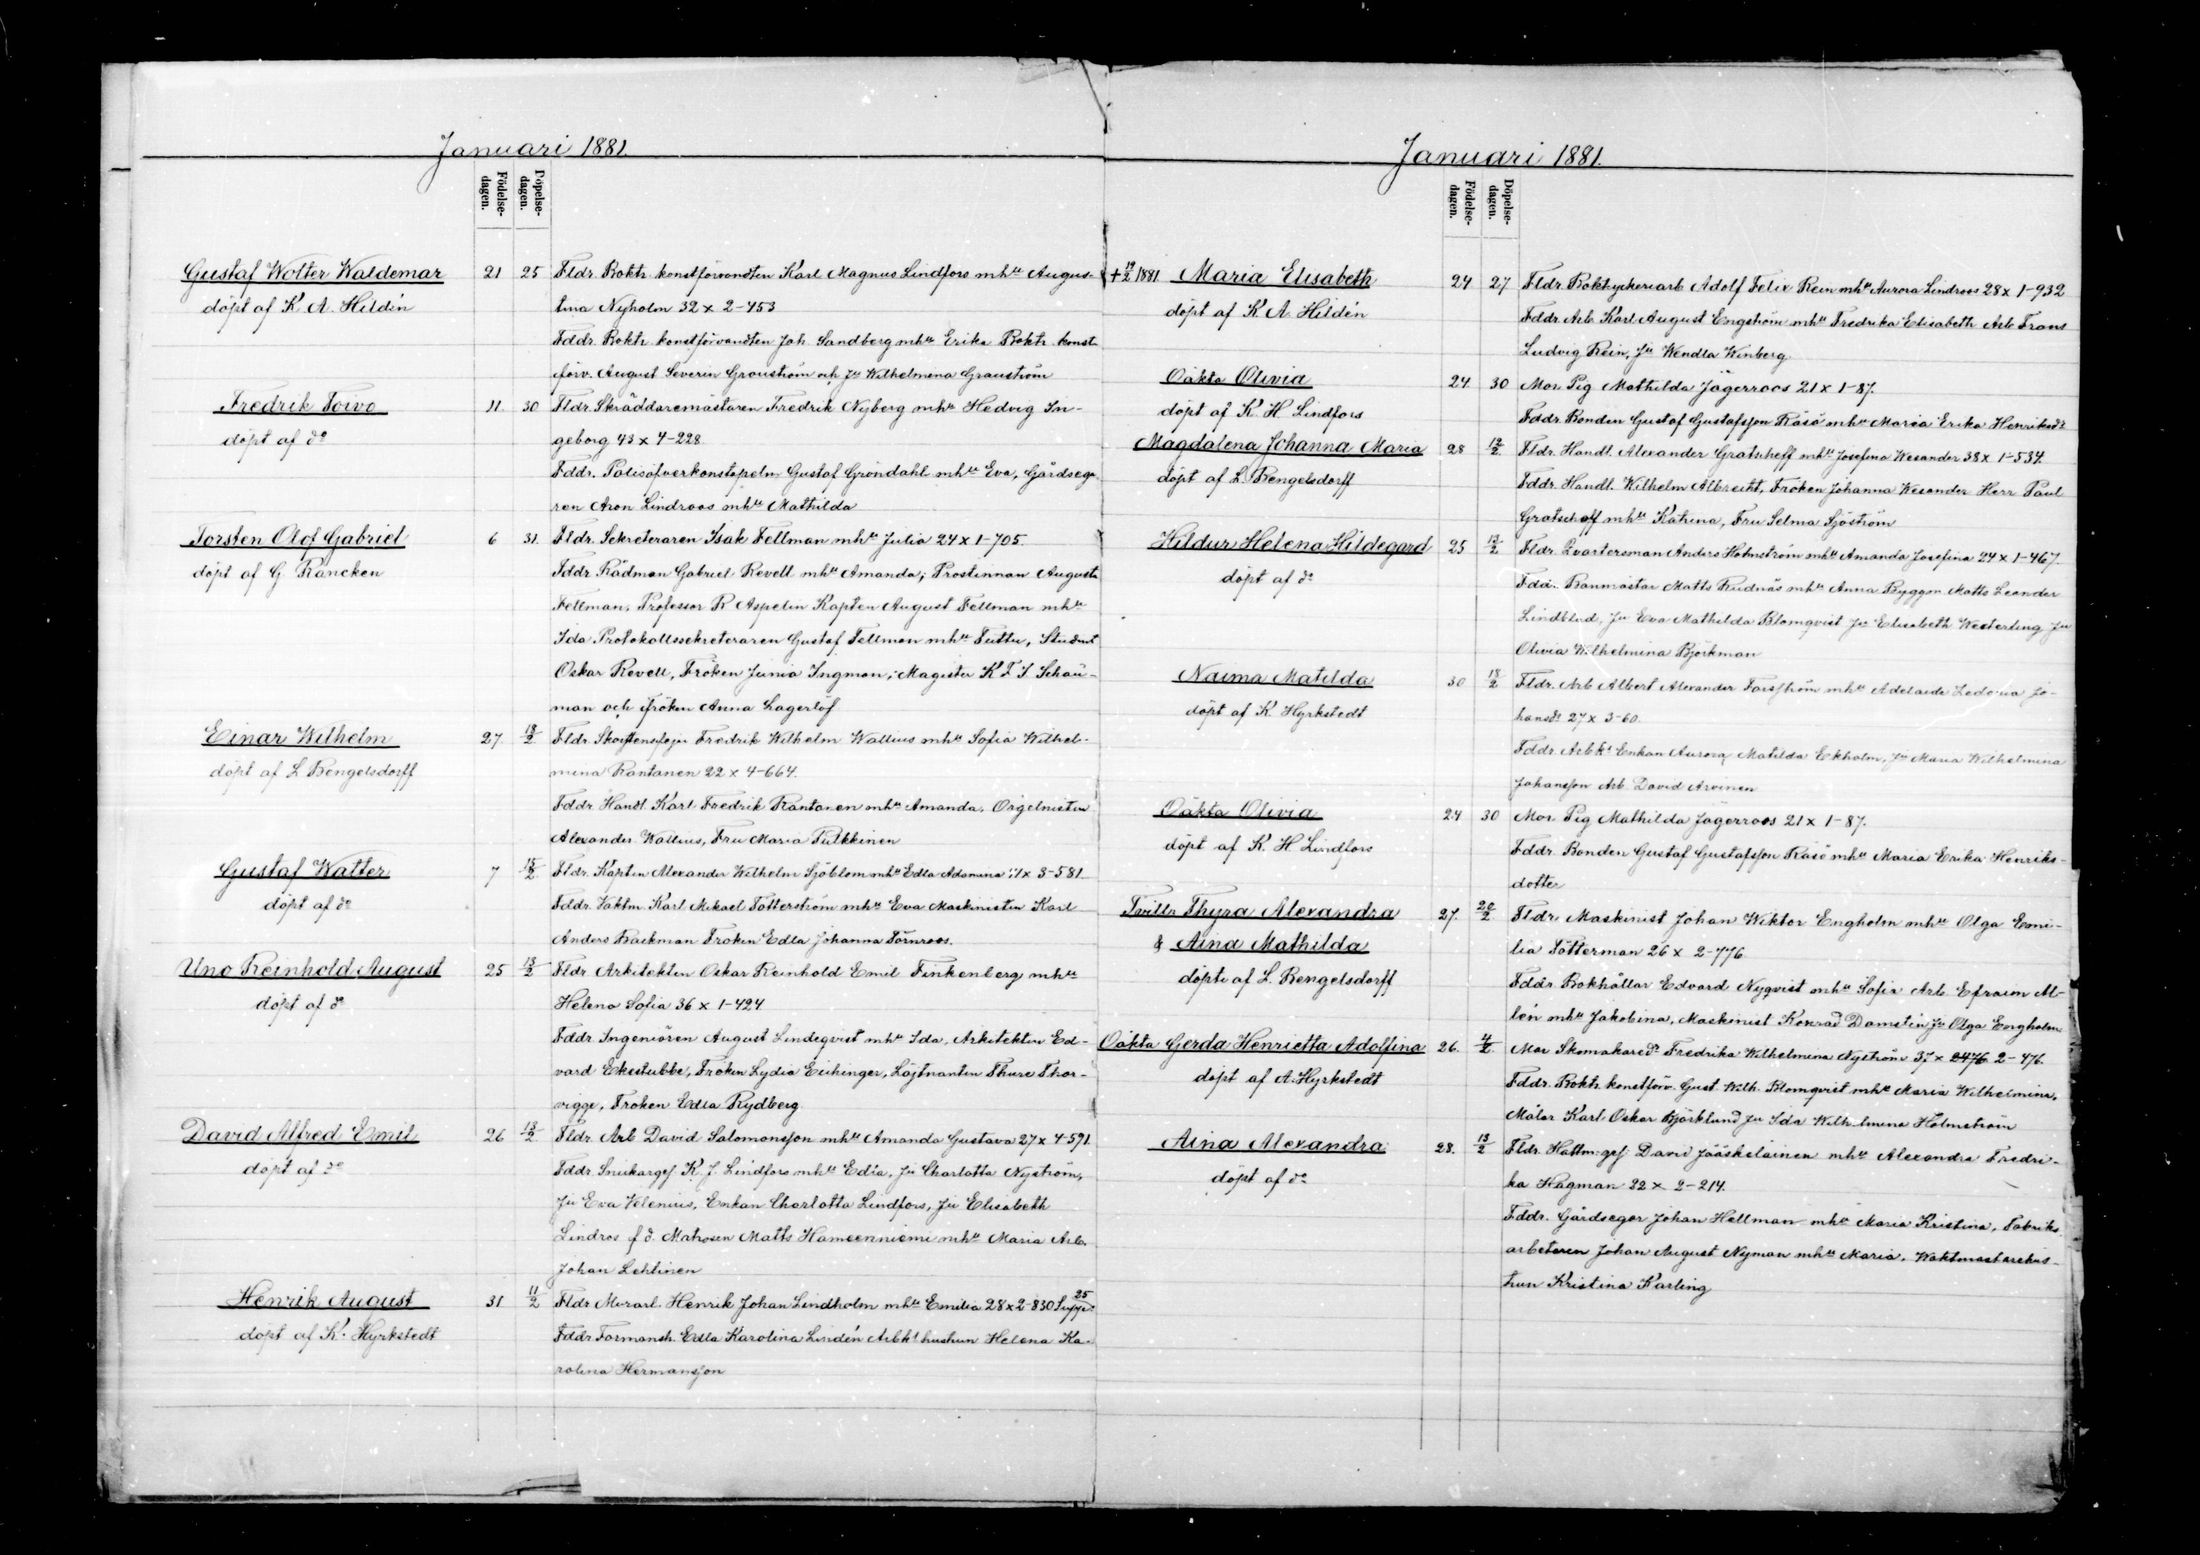 Januari 1881.
Födelse-dagen.
Döpelse-dagen.
Gustaf Wolter Waldemar 21 25 Fldr. Boktr. konstförvandten Karl Magnus Lindfors mhu Augus-
döpt af K. A. Hildén tina Nyholm 32 x 2-453
Fddr. Boktr. konstförvandten Joh. Sandberg mhu Erika Boktr. konst
förv. August Severin Granström och Ju Wilhelmina Granström
Fredrik Toivo 11. 30 Fldr. Skräddaremästaren Fredrik Nyberg mhu Hedvig In-
döpt af do geborg 43 x 4-228
Fddr. Polisöfverkonstapeln Gustaf Gröndahl mhu Eva, Gårdsega
ren Aron Lindroos mhu Mathilda
Torsten Olof Gabriel 6 31. Fldr. Sekreteraren Isak Fellman mhu Julia 24 x 1-705
döpt af G. Råncken Fddr. Rådman Gabriel Revell mhu Amanda, Prostinnan Augusta
Fellman, Professor R Aspelin Kapten August Fellman mhu
Ida Protokollssekreteraren Gustaf Fellman mhu Tuttu, Student
Oskar Revell, Fröken Junia Ingman, Magister K F I Schau-
man och fröken Anna Lagerlöf
Einar Wilhelm 27. 13/2 Fldr. Skorstensfejar Fredrik Wilhelm Wallius mhu Sofia Wilhel-
döpt af L Bengelsdorff mina Rantanen 22 x 4-664.
Fddr. Handl Karl Fredrik Rantanen mhu Amanda, Orgelnisten
Alexander Wallius, Fru Maria Pulkkinen
Gustaf Walter 7 13/2 Fldr. Kapten Alexander Wilhelm Sjöblom mhu Edla Adamina x 3-581
döpt af do Fddr. Vaktm. Karl Mikael Totterström mhu Eva Maskinisten Karl
Anders Backman Fröken Edla Johanna Törnroos.
Uno Reinhold August 25 13/2 Fldr. Arkitekten Oskar Reinhold Emil Finkenberg mhu
döpt af do Helena Sofia 36 x 1-424
Fddr. Ingeniören August Lindeqvist mhu Ida, Arkitekten Ed-
vard Eksstubbe, Fröken Lydia Eichinger, Löjtnanten Thure Thor-
vigge, Fröken Edla Rydberg
David Alfred Emil 26 13/2 Fldr. Arb David Salomonsson mhu Amanda Gustava 27 x 4-591
döpt af do Fddr. Snickargs K. J. Lindfors mhu Edla, Ju Charlotta Nyström,
Ju Eva Velenius, Enkan Charlotta Lindfors, Ju Elisabeth
Lindros f.d. Matrosen Matts Hameenniemi mhu Maria Arb.
Johan Lehtinen
Henrik August 31 11/2 Fldr Murarl. Henrik Johan Lindholm mhu Emilia 28 x 2-830 Suppl. 25
döpt af K. Hyrkstedt Fddr Formansh. Edla Karolina Lindén Arbkt hustrun Helena Ka-
rolina Hermansson
Januari 1881.
Födelse-dagen.
Döpelse-dagen.
+ 19/2 1881 Maria Elisabeth 24 27 Fldr. Boktryckeriarb Adolf Felix Rein mhu Aurora Lindroos 28 x 1-932
döpt af K. A. Hildén Fddr. Arb. Karl August Engström mhu Fredrika Elisabeth Arb Frans
Ludvig Rein, Ju Wendla Winberg
Oäkta Olivia 24 30 Mor Pig Mathilda Jägerroos 21 x 1-87.
döpt af K. H Lindfors Fddr. Bonden Gustaf Gustafsson Räsö mhu Maria Erika Henriksdr
Magdalena Johanna Maria 28 12/2 Fldr. Handl. Alexander Gratscheff mhu Josefina Wesander 38 x 1-534.
döpt af L. Bengelsdorff Fddr. Handl. Wilhelm Albrecht, Fröken Johanna Wesander Herr Paul
Gratscheff mhu Katrina, Fru Selma Sjöström
Hildur Helena Hildegard 25 13/2 Fldr. Qvartersman Anders Holmström mhu Amanda Josefina 24 x 1-467.
döpt af do Fddr. Banmästar Matts Rudnäs mhu Anna Byggm. Matts Leander
Lindblad, Ju Eva Mathilda Blomqvist Ju Elisabeth Westerling Ju
Olivia Wilhelmina Björkman
Naima Matilda 30 13/2 Fldr. Arb Albert Alexander Forsström mhu Adelaide Ledovia Jo-
döpt af K. Hyrkstedt hansdr 27 x 3-60.
Fddr. Arbkt Enkan Aurora Matilda Ekholm, Ju Maria Wilhelmina
Johansson Arb. David Arvinen
Oäkta Olivia 24 30 Mor Pig Mathilda Jägerroos 21 x 1-87.
döpt af K. H Lindfors Fddr. Bonden Gustaf Gustafsson Räsö mhu Maria Erika Henriks-
dotter
Tvillr Thyra Alexandra 27. 20/2 Fldr. Maskinist Johan Wiktor Engholm mhu Olga Emi-
& Aina Mathilda lia Totterman 26 x 2-776
döpte af L. Bengelsdorff Fddr. Bokhållar Edvard Nyqvist mhu Sofia Arb. Efraim Al-
lén mhu Jakobina, Maskinist Konrad Damstén Ju Olga Engholm.
Oäkta Gerda Henrietta Adolfina 26. 4/2 Mor Skomakaredr Fredrika Wilhelmina Nyström 37 x 2476 2-476.
döpt af A. Hyrkstedt Fddr. Boktr. konstförv. Gust. Wilh. Blomqvist mhu Maria Wilhelmina,
Målar Karl Oskar Björklund Ju Ida Wilhelmina Holmström
Aina Alexandra 28. 13/2 Fldr. Hattm.gs David Jääskeläinen mhu Alexandra Fredri-
döpt af do ka Hagman 32 x 2-214.
Fddr. Gårdsegar Johan Hellman mhu Maria Kristina, Fabriks
arbetaren Johan August Nyman mhu Maria, Waktmästarehus-
trun Kristina Karling